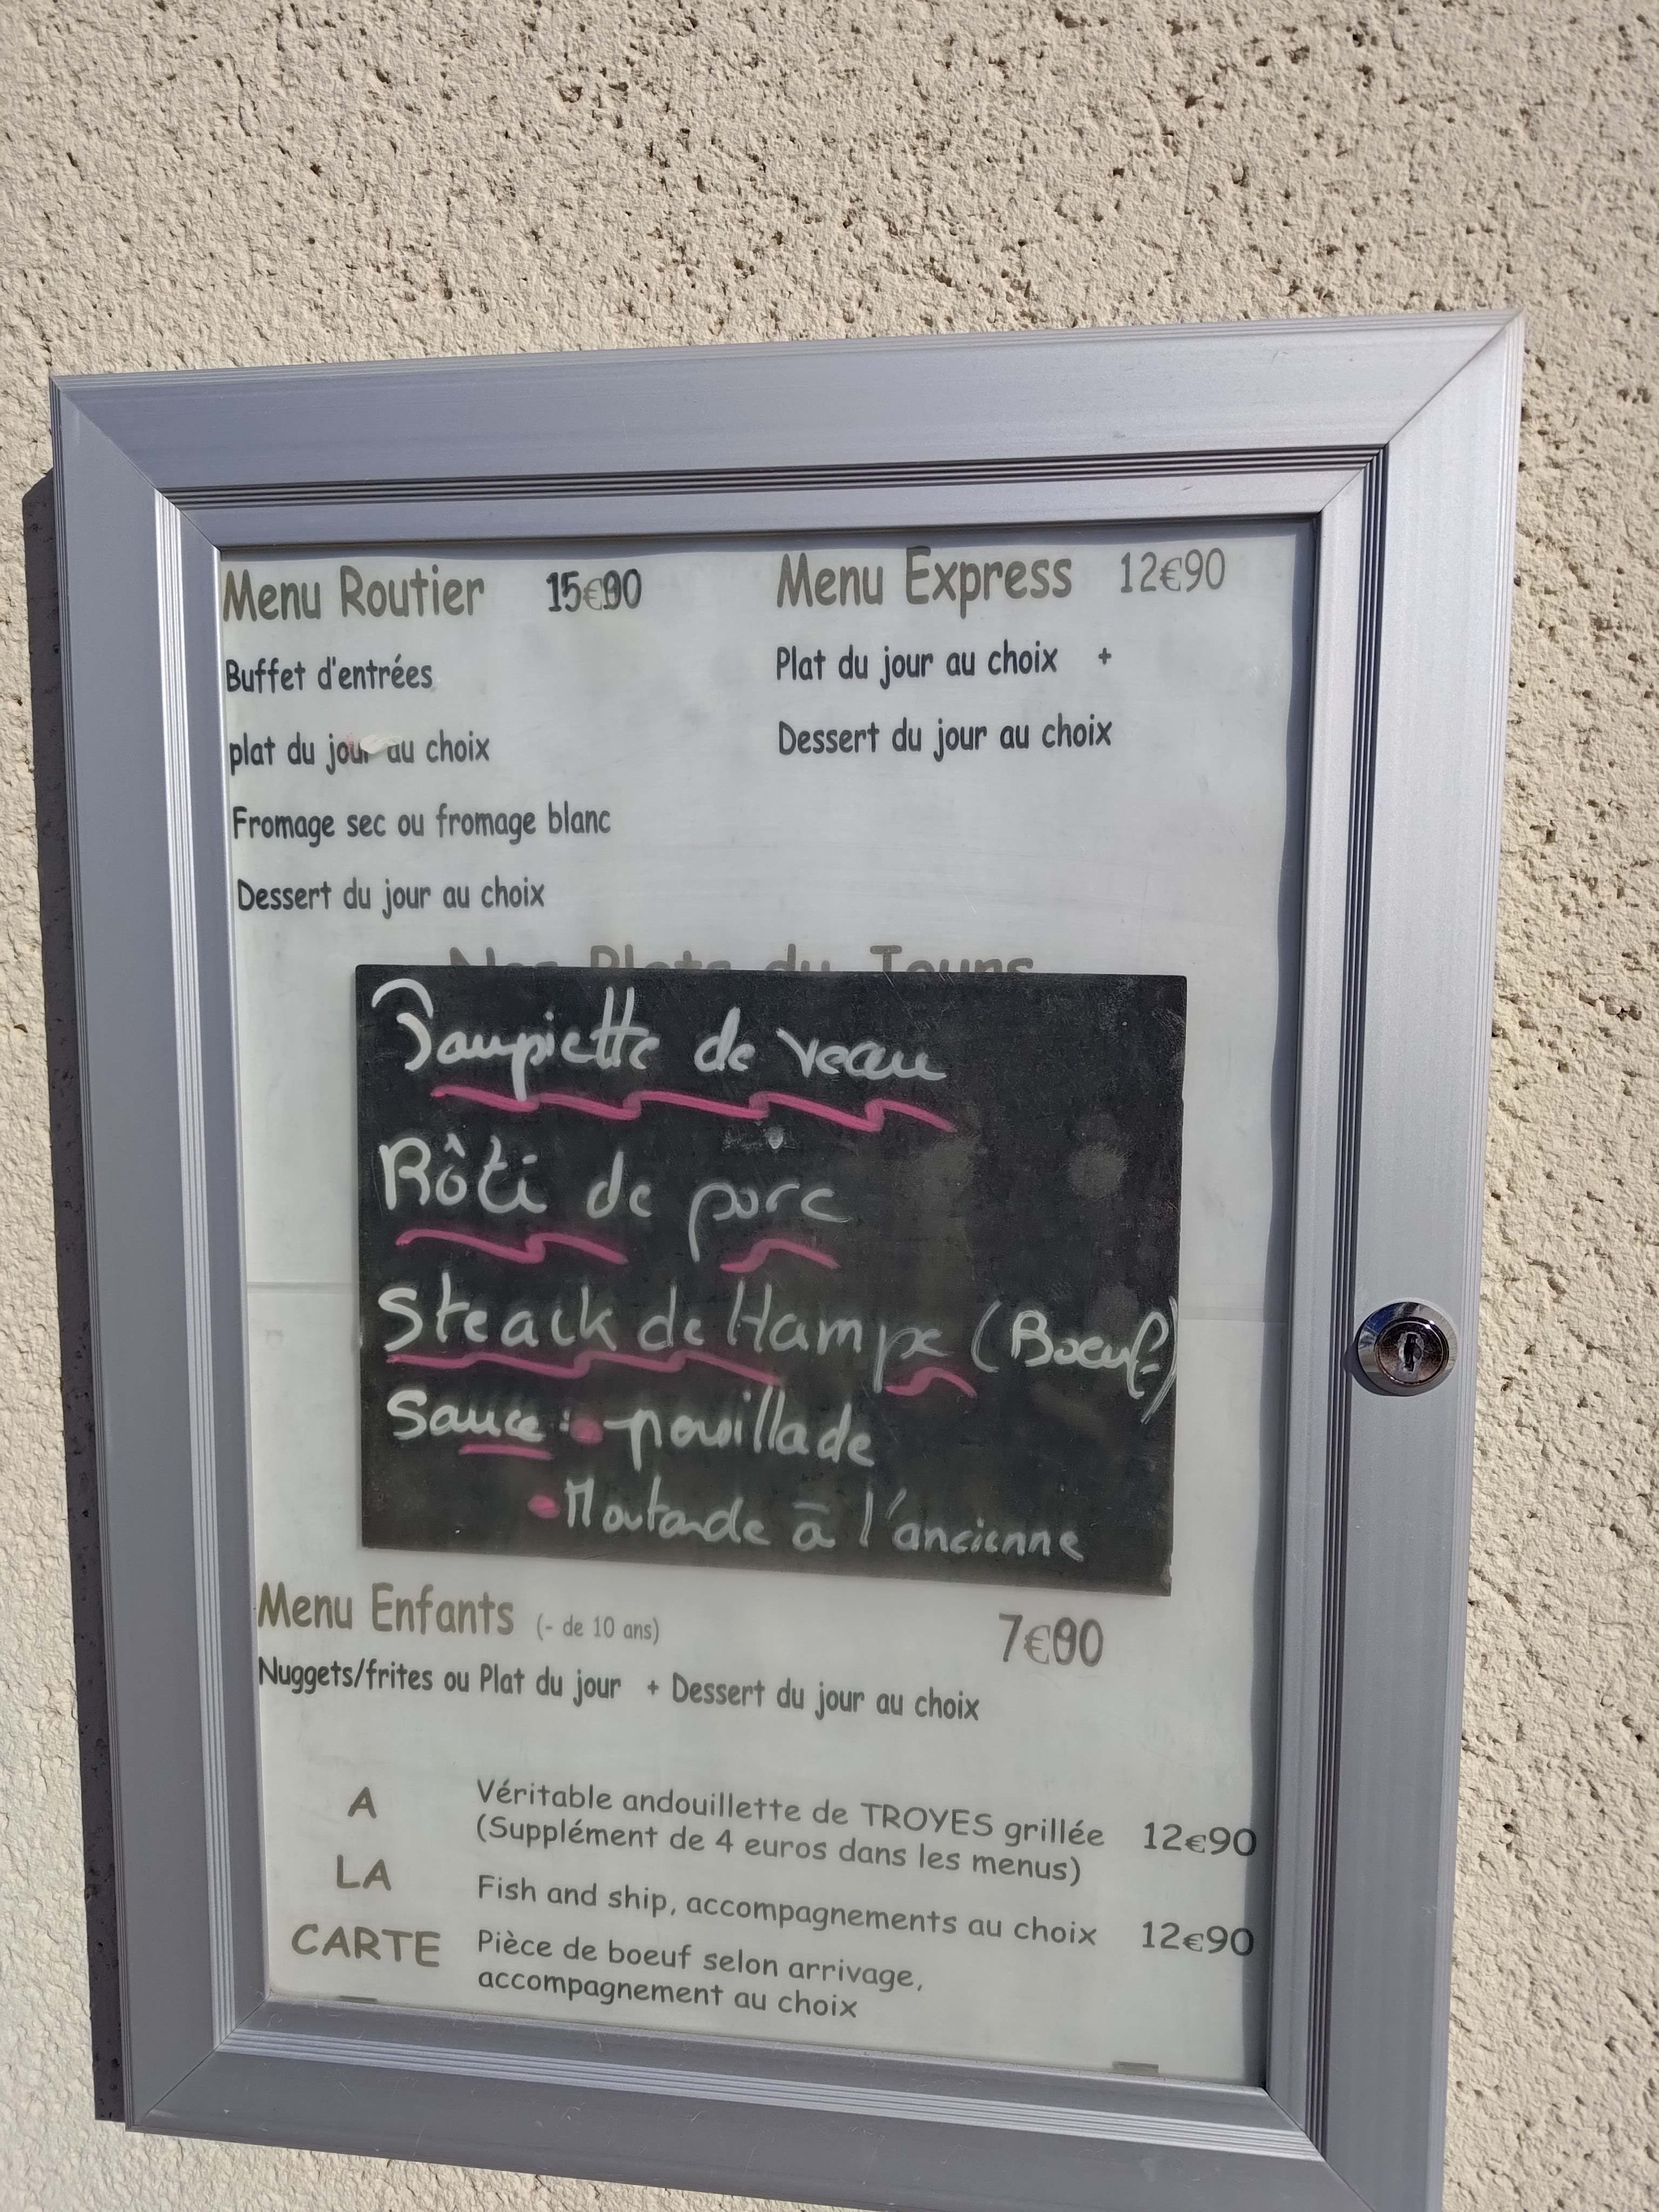 Menu Routier 15€90
Buffet d'entrées
plat du jour au choix
Fromage sec ou fromage blanc
Dessert du jour au choix
Menu Express 12€90
Plat du jour au choix +
Dessert du jour au choix
Nos Plats du Jours
Paupiette de veau
Rôti de porc
Steack de Hampe (Boeuf)
Sauce : - pouillade
Moutarde à l'ancienne
Menu Enfants (- de 10 ans) 7€00
Nuggets/frites ou Plat du jour + Dessert du jour au choix
A
LA
CARTE
Véritable andouillette de TROYES grillée 12€90
(Supplément de 4 euros dans les menus)
Fish and ship, accompagnements au choix 12€90
Pièce de boeuf selon arrivage,
accompagnement au choix